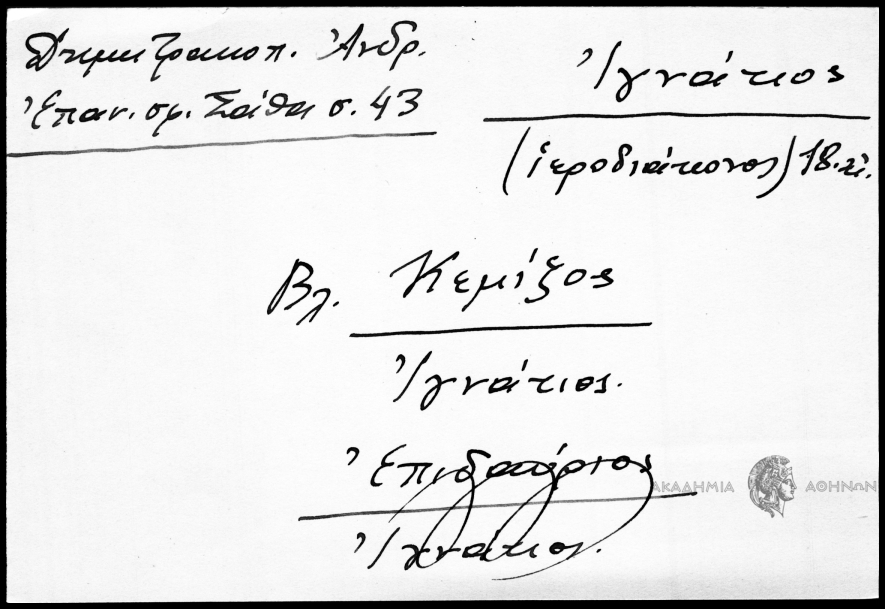 Δημητρακοπ. Ἀνδρ.
Ἐπαν. σφ. Σάθα σ. 43
Ἰγνάτιος
(ἱεροδιάκονος) 18. αἰ.
Βλ. Κεμίζος
Ἰγνάτιος.
Ἐπιδαύριος
Ἰγνάτιος.
ΑΚΑΔΗΜΙΑ ΑΘΗΝΩΝ